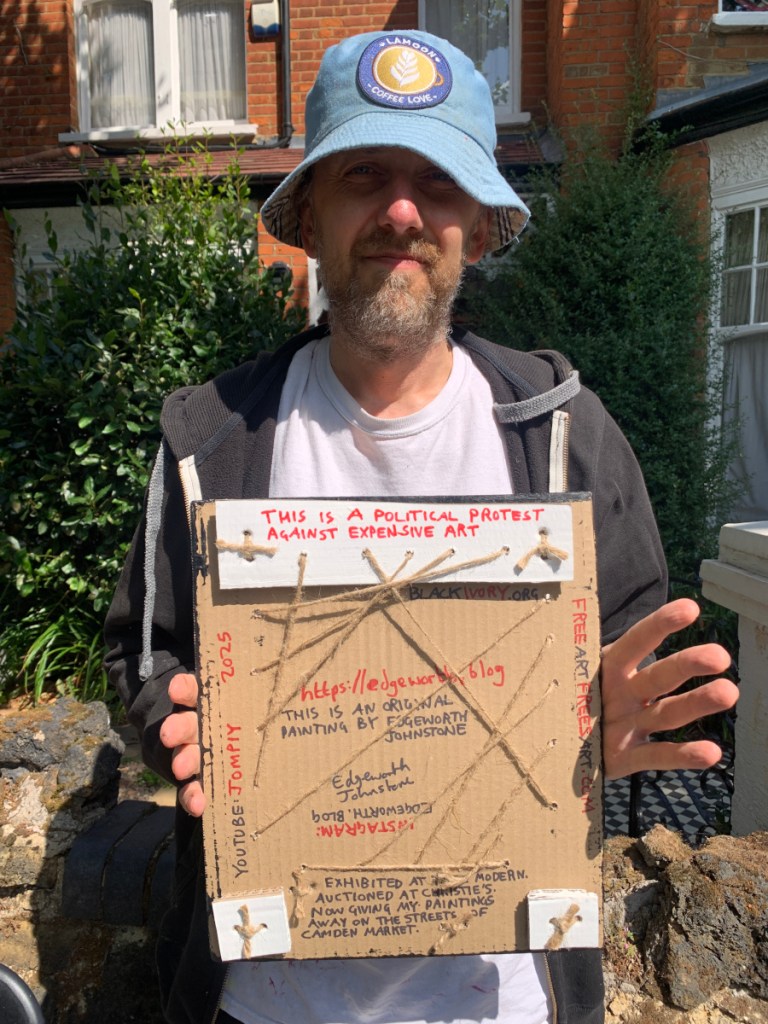 LAMOON
COFFEE LOVE.
THIS IS A POLITICAL PROTEST
AGAINST EXPENSIVE ART
BLACKIVORY.ORG
https://edgeworth.blog
THIS IS AN ORIGINAL
PAINTING BY EDGEWORTH
JOHNSTONE
Edgeworth
Johnstone
INSTAGRAM:
EDGEWORTH.BLOG
YOUTUBE: JOMPIY 2025
FREEARTFREESART.COM
EXHIBITED AT MODERN.
AUCTIONED AT CHRISTIE'S.
NOW GIVING MY PAINTINGS
AWAY ON THE STREETS OF
CAMDEN MARKET.